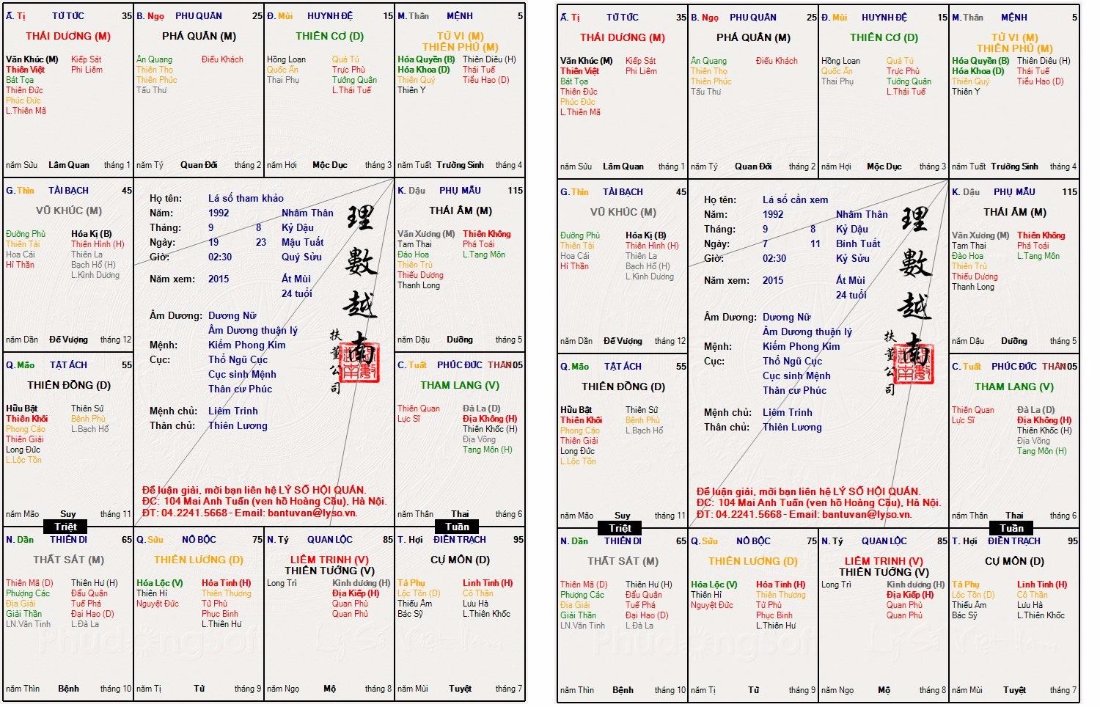 Á. Tị TỬ TỨC 35
THÁI DƯƠNG (M)
Văn Khúc (M) Kiếp Sát
Thiên Việt Phi Liêm
Bát Tọa
Thiên Đức
Phúc Đức
L.Thiên Mã
năm Sửu Lâm Quan tháng 1
B. Ngọ PHU QUÂN 25
PHÁ QUÂN (M)
Ân Quang Điếu Khách
Thiên Thọ
Thiên Phúc
Tấu Thư
năm Tý Quan Đới tháng 2
Đ. Mùi HUYNH ĐỆ 15
THIÊN CƠ (D)
Hồng Loan Quả Tú
Quốc Ấn Trực Phù
Thai Phụ Tướng Quân
L.Thái Tuế
năm Hợi Mộc Dục tháng 3
M. Thân MỆNH 5
TỬ VI (M)
THIÊN PHỦ (M)
Hóa Quyền (B) Thiên Diêu (H)
Hóa Khoa (D) Thái Tuế
Thiên Quý Tiểu Hao (D)
Thiên Y
năm Tuất Trường Sinh tháng 4
G. Thìn TÀI BẠCH 45
VŨ KHÚC (M)
Đường Phù Hóa Kị (B)
Thiên Tài Thiên Hình (H)
Hoa Cái Thiên La
Hỉ Thần Bạch Hổ (H)
L.Kình Dương
năm Dần Đế Vượng tháng 12
Họ tên: Lá số tham khảo
Năm: 1992 Nhâm Thân
Tháng: 9 8 Kỷ Dậu
Ngày: 19 23 Mậu Tuất
Giờ: 02:30 Quý Sửu
Năm xem: 2015 Ất Mùi
24 tuổi
Âm Dương: Dương Nữ
Âm Dương thuận lý
Mệnh: Kiếm Phong Kim
Cục: Thổ Ngũ Cục
Cục sinh Mệnh
Thân cư Phúc
Mệnh chủ: Liêm Trinh
Thân chủ: Thiên Lương
理數越南
扶董公司
Để luận giải, mời bạn liên hệ LÝ SỐ HỘI QUÁN.
ĐC: 104 Mai Anh Tuấn (ven hồ Hoàng Cầu), Hà Nội.
ĐT: 04.2241.5668 - Email: bantuvan@lyso.vn.
K. Dậu PHỤ MẪU 115
THÁI ÂM (M)
Văn Xương (M) Thiên Không
Tam Thai Phá Toái
Đào Hoa L.Tang Môn
Thiên Trù
Thiếu Dương
Thanh Long
năm Dậu Dưỡng tháng 5
Q. Mão TẬT ÁCH 55
THIÊN ĐỒNG (D)
Hữu Bật Thiên Sứ
Thiên Khôi Bệnh Phù
Phong Cáo L.Bạch Hổ
Thiên Giải
Long Đức
L.Lộc Tồn
năm Mão Suy tháng 11
C. Tuất PHÚC ĐỨC THÂN05
THAM LANG (V)
Thiên Quan Đà La (D)
Lực Sĩ Địa Không (H)
Thiên Khốc (H)
Địa Võng
Tang Môn (H)
năm Thân Thai tháng 6
Triệt
Tuần
N. Dần THIÊN DI 65
THẤT SÁT (M)
Thiên Mã (D) Thiên Hư (H)
Phượng Các Đẩu Quân
Địa Giải Tuế Phá
Giải Thần Đại Hao (D)
LN.Văn Tinh L.Đà La
năm Thìn Bệnh tháng 10
Q. Sửu NÔ BỘC 75
THIÊN LƯƠNG (D)
Hóa Lộc (V) Hỏa Tinh (H)
Thiên Hỉ Thiên Thương
Nguyệt Đức Tử Phù
Phục Binh
L.Thiên Hư
năm Tị Tử tháng 9
N. Tý QUAN LỘC 85
LIÊM TRINH (V)
THIÊN TƯỚNG (V)
Long Trì Kình dương (H)
Địa Kiếp (H)
Quan Phù
Quan Phủ
năm Ngọ Mộ tháng 8
T. Hợi ĐIỀN TRẠCH 95
CỰ MÔN (D)
Tả Phụ Linh Tinh (H)
Lộc Tồn (D) Cô Thần
Thiếu Âm Lưu Hà
Bác Sỹ L.Thiên Khốc
năm Mùi Tuyệt tháng 7
Á. Tị TỬ TỨC 35
THÁI DƯƠNG (M)
Văn Khúc (M) Kiếp Sát
Thiên Việt Phi Liêm
Bát Tọa
Thiên Đức
Phúc Đức
L.Thiên Mã
năm Sửu Lâm Quan tháng 1
B. Ngọ PHU QUÂN 25
PHÁ QUÂN (M)
Ân Quang Điếu Khách
Thiên Thọ
Thiên Phúc
Tấu Thư
năm Tý Quan Đới tháng 2
Đ. Mùi HUYNH ĐỆ 15
THIÊN CƠ (D)
Hồng Loan Quả Tú
Quốc Ấn Trực Phù
Thai Phụ Tướng Quân
L.Thái Tuế
năm Hợi Mộc Dục tháng 3
M. Thân MỆNH 5
TỬ VI (M)
THIÊN PHỦ (M)
Hóa Quyền (B) Thiên Diêu (H)
Hóa Khoa (D) Thái Tuế
Thiên Quý Tiểu Hao (D)
Thiên Y
năm Tuất Trường Sinh tháng 4
G. Thìn TÀI BẠCH 45
VŨ KHÚC (M)
Đường Phù Hóa Kị (B)
Thiên Tài Thiên Hình (H)
Hoa Cái Thiên La
Hỉ Thần Bạch Hổ (H)
L.Kình Dương
năm Dần Đế Vượng tháng 12
Họ tên: Lá số cần xem
Năm: 1992 Nhâm Thân
Tháng: 9 8 Kỷ Dậu
Ngày: 7 11 Bính Tuất
Giờ: 02:30 Kỷ Sửu
Năm xem: 2015 Ất Mùi
24 tuổi
Âm Dương: Dương Nữ
Âm Dương thuận lý
Mệnh: Kiếm Phong Kim
Cục: Thổ Ngũ Cục
Cục sinh Mệnh
Thân cư Phúc
Mệnh chủ: Liêm Trinh
Thân chủ: Thiên Lương
理數越南
扶董公司
Để luận giải, mời bạn liên hệ LÝ SỐ HỘI QUÁN.
ĐC: 104 Mai Anh Tuấn (ven hồ Hoàng Cầu), Hà Nội.
ĐT: 04.2241.5668 - Email: bantuvan@lyso.vn.
K. Dậu PHỤ MẪU 115
THÁI ÂM (M)
Văn Xương (M) Thiên Không
Tam Thai Phá Toái
Đào Hoa L.Tang Môn
Thiên Trù
Thiếu Dương
Thanh Long
năm Dậu Dưỡng tháng 5
Q. Mão TẬT ÁCH 55
THIÊN ĐỒNG (D)
Hữu Bật Thiên Sứ
Thiên Khôi Bệnh Phù
Phong Cáo L.Bạch Hổ
Thiên Giải
Long Đức
L.Lộc Tồn
năm Mão Suy tháng 11
C. Tuất PHÚC ĐỨC THÂN05
THAM LANG (V)
Thiên Quan Đà La (D)
Lực Sĩ Địa Không (H)
Thiên Khốc (H)
Địa Võng
Tang Môn (H)
năm Thân Thai tháng 6
Triệt
Tuần
N. Dần THIÊN DI 65
THẤT SÁT (M)
Thiên Mã (D) Thiên Hư (H)
Phượng Các Đẩu Quân
Địa Giải Tuế Phá
Giải Thần Đại Hao (D)
LN.Văn Tinh L.Đà La
năm Thìn Bệnh tháng 10
Q. Sửu NÔ BỘC 75
THIÊN LƯƠNG (D)
Hóa Lộc (V) Hỏa Tinh (H)
Thiên Hỉ Thiên Thương
Nguyệt Đức Tử Phù
Phục Binh
L.Thiên Hư
năm Tị Tử tháng 9
N. Tý QUAN LỘC 85
LIÊM TRINH (V)
THIÊN TƯỚNG (V)
Long Trì Kình dương (H)
Địa Kiếp (H)
Quan Phù
Quan Phủ
năm Ngọ Mộ tháng 8
T. Hợi ĐIỀN TRẠCH 95
CỰ MÔN (D)
Tả Phụ Linh Tinh (H)
Lộc Tồn (D) Cô Thần
Thiếu Âm Lưu Hà
Bác Sỹ L.Thiên Khốc
năm Mùi Tuyệt tháng 7